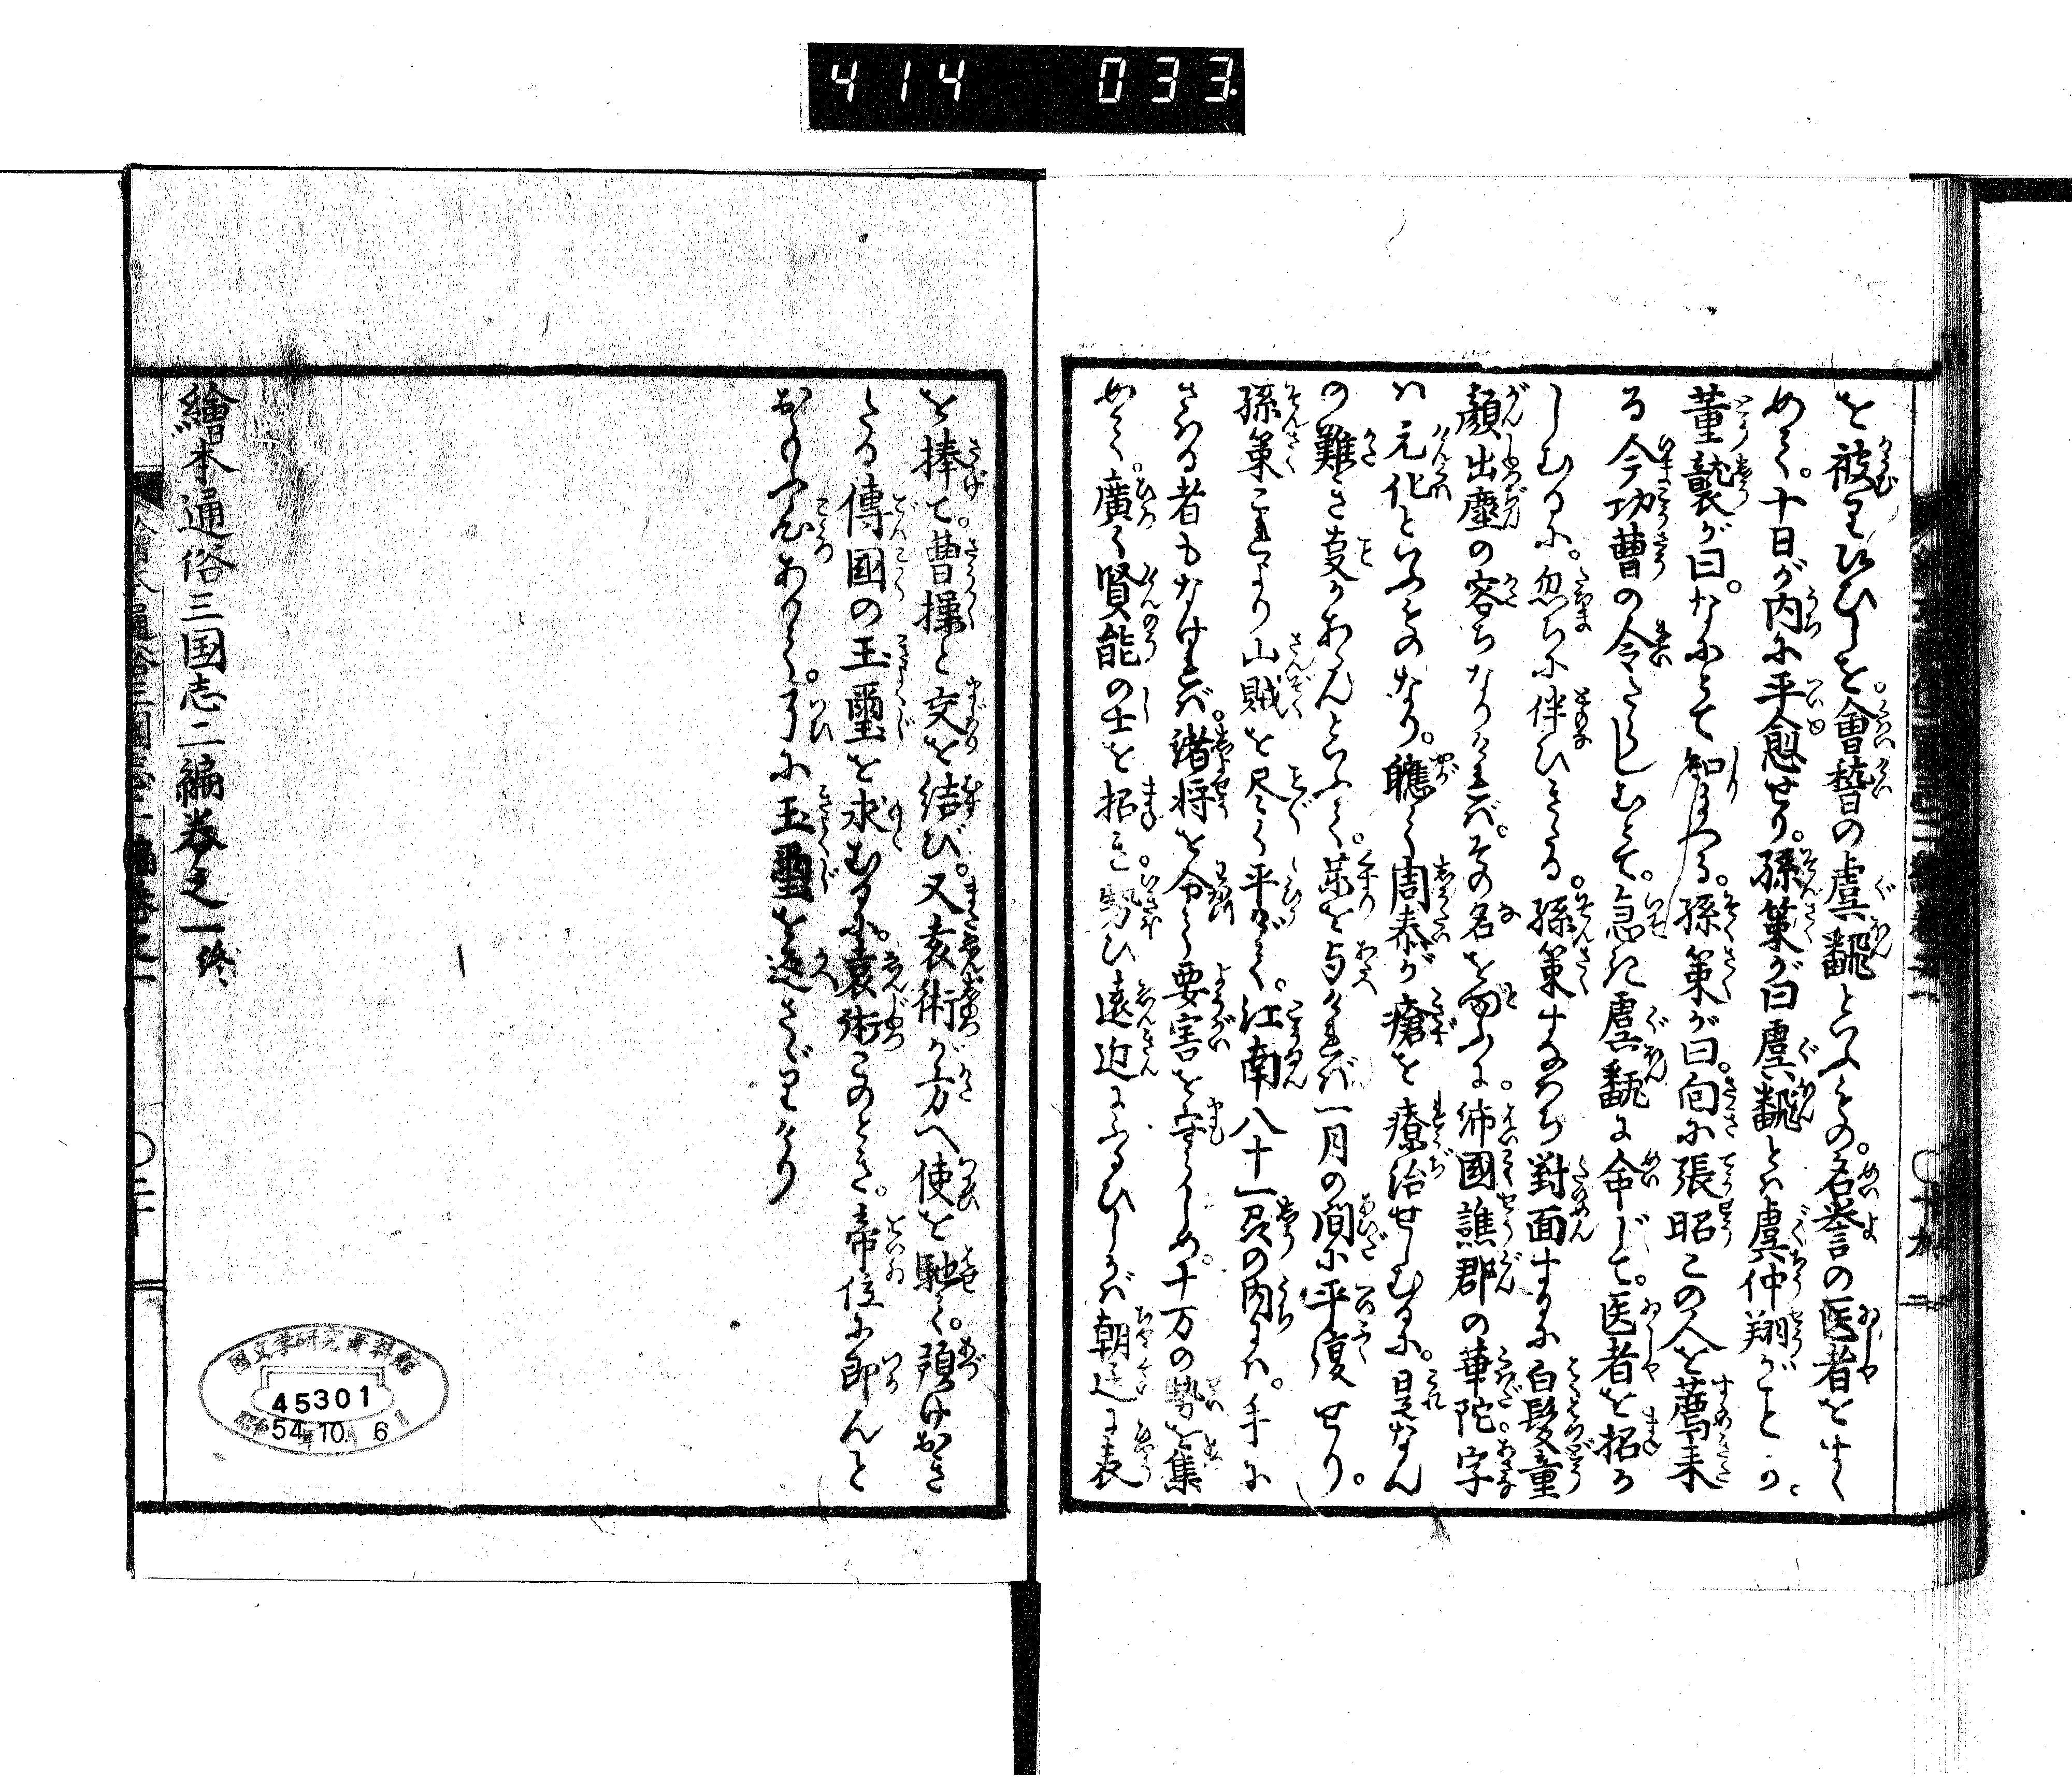 414 033.
を被り候ひしを。會稽の虞翻といふもの。名誉の医者をすゝ
めて。十日が内に平愈せり。孫策が曰虞翻とは虞仲翔がことか。
董襲が曰。なにとて知玉へる。孫策が曰。向に張昭この人を薦め来
る今功曹の令たらしむとて。急に虞翻に命じて。医者を招か
しむるに。忽ちに伴ひきたる。孫策すなわち對面するに白髪童
顔出塵の容ちなりければ。その名を問ふに。沛國譙郡の華陀字
は元化といふものなり。軈て周泰が瘡を療治せしむるに。是なん
の難き叓かあらんといふて。薬を与ければ一月の間に平復せり。
孫策これより山賊を尽く平げて。江南八十一郡の内には。手に
さはる者もなければ。諸将を分ち要害を守らしめ。十万の勢を集
めて。廣く賢能の士を招き。勢ひ遠近にふるひしかば朝廷に表
を捧て。曹操と交を結び。又袁術が方へ使を馳て。預けおき
たる傳國の玉璽を求むるに。袁術このとき。帝位に即んと
おもふ心ありて。了に玉璽を返さゞりけり
繪本通俗三国志二編巻之一終
〇二十
〇十九
國文学研究資料館
45301
昭和54年10月6日